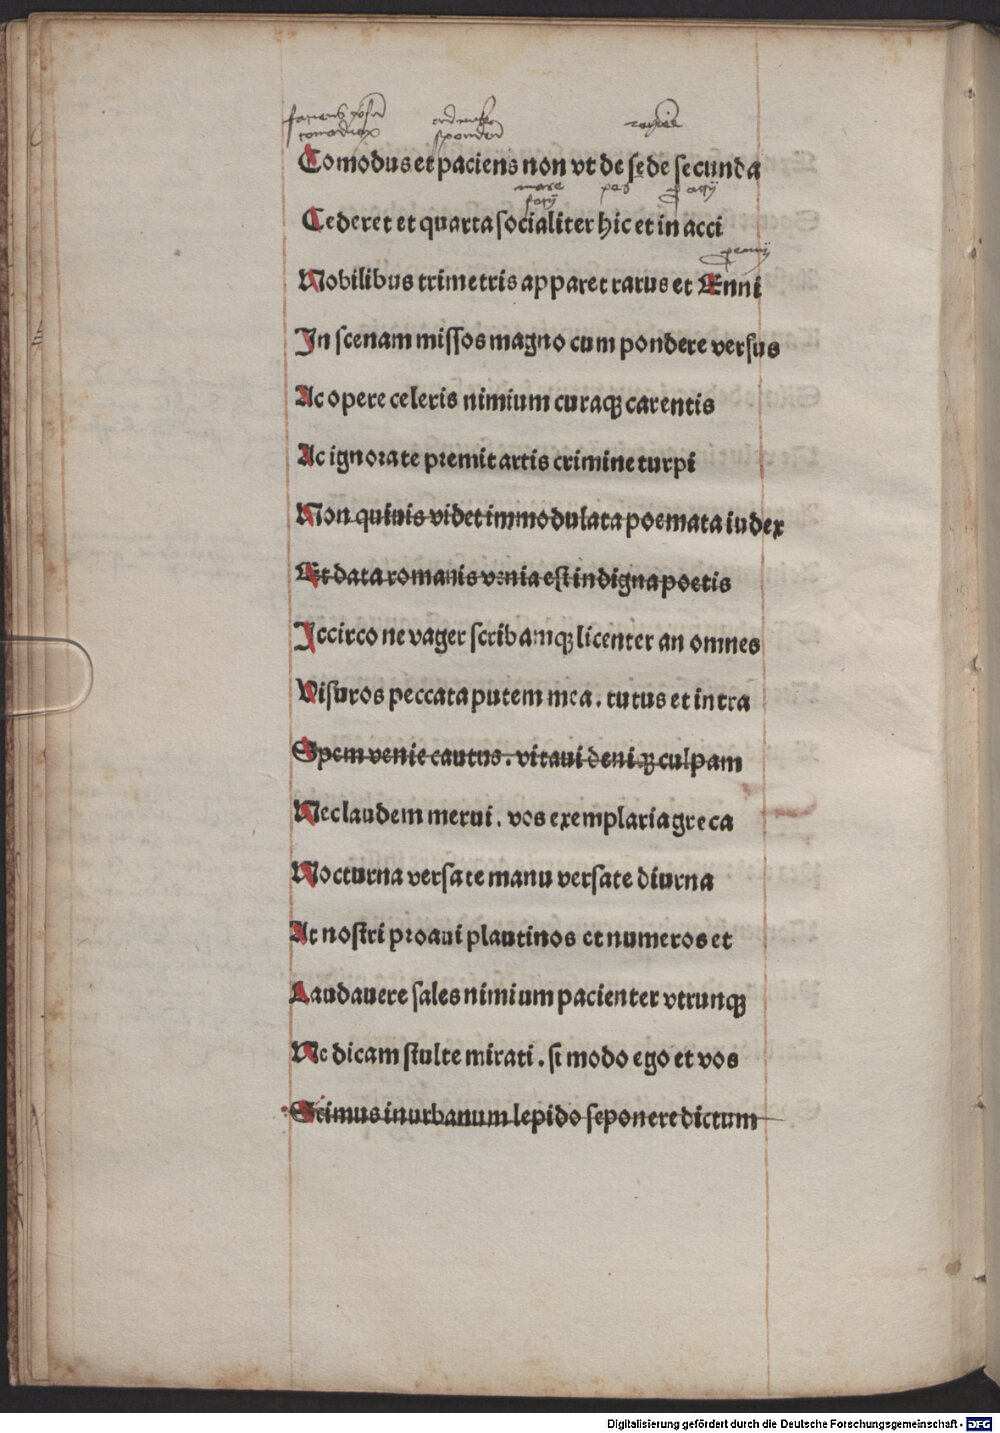 Comodus et paciens non vt de sede secunda
Cederet et quarta socialiter hic et in acci
Nobilibus trimetris apparet rarus et Enni
In scenam missos magno cum pondere versus
Ac opere celeris nimium curaqꝫ carentis
Ac ignorate premit artis crimine turpi
Non quiuis videt immodulata poemata iudex
Et data romanis venia est indigna poetis
Iccirco ne vager scribamqꝫ licenter an omnes
Visuros peccata putem mea. tutus et intra
Spem venie cautus. vitaui deniqꝫ culpam
Nec laudem merui. vos exemplaria greca
Nocturna versate manu versate diurna
At nostri proaui plautinos et numeros et
Laudauere sales nimium pacienter vtrunqꝫ
Ne dicam stulte mirati. si modo ego et vos
Scimus inurbanum lepido seponere dictum
Digitalisierung gefördert durch die Deutsche Forschungsgemeinschaft - DFG